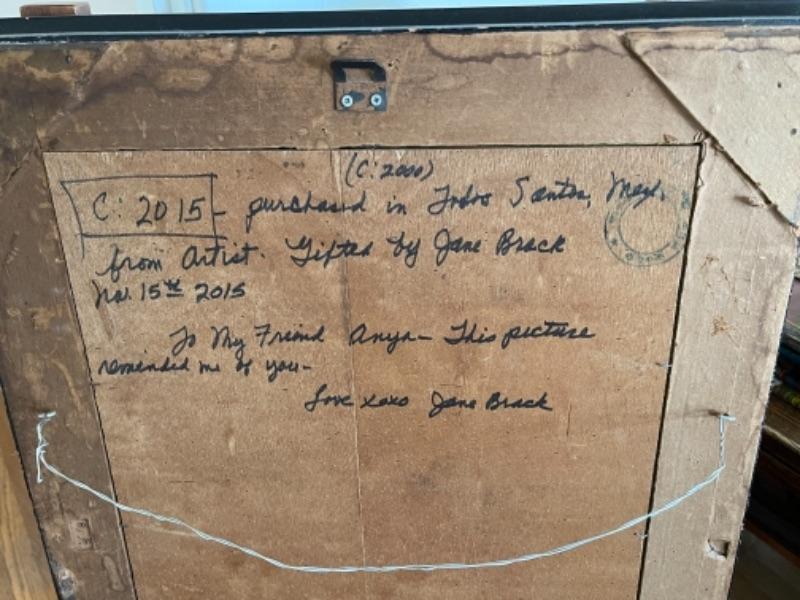 (C: 2000)
C: 2015 - purchased in Todos Santos, Mexi.
from Artist. Gifted by Jane Brack
Nov. 15th 2015
To My Friend Anya - This picture
reminded me of you -
Love xoxo Jane Brack